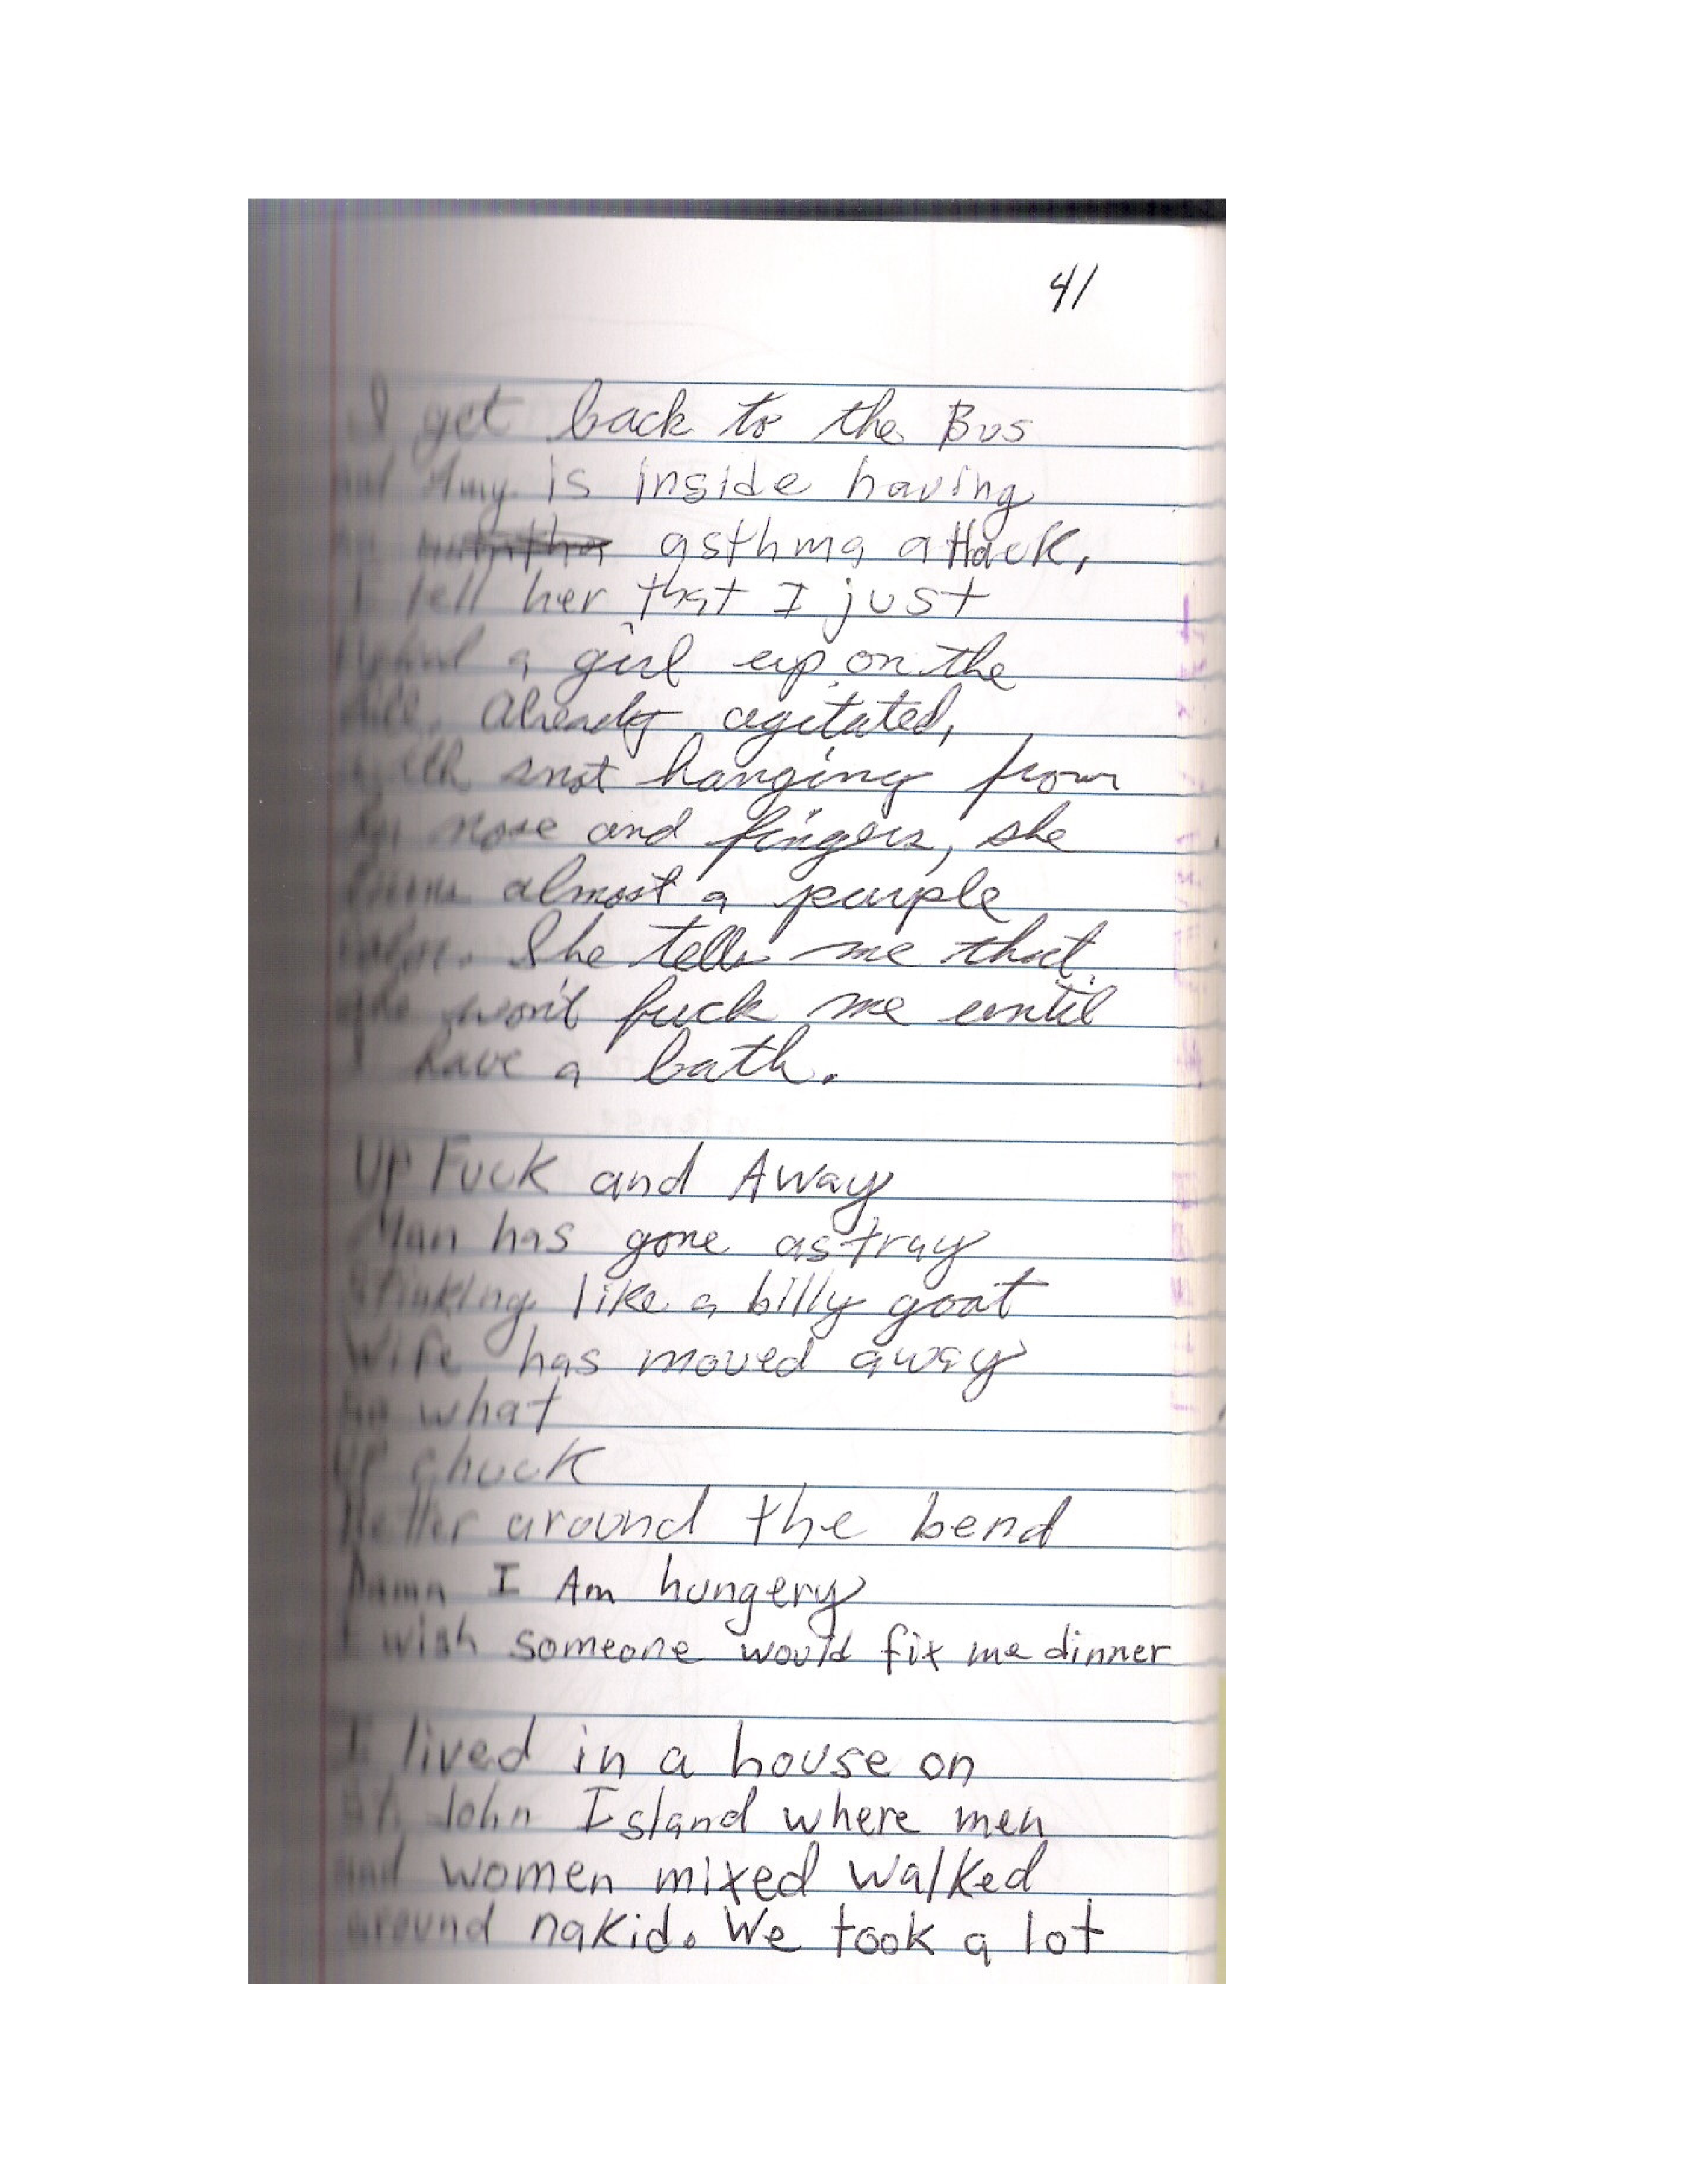 41
I get back to the Bus
and Amy is inside having
an asthma attack,
I tell her that I just
a girl up on the
hill. Already agitated,
with snot hanging from
her nose and fingers, she
turns almost a purple
color. She tells me that
she won't fuck me until
I have a bath.
UP Fuck and Away
Man has gone astray
Stinking like a billy goat
Wife has moved away
so what
UP chuck
Better around the bend
Damn I Am hungery
I wish someone would fix me dinner
I lived in a house on
St. John Island where men
and women mixed walked
around nakid. We took a lot